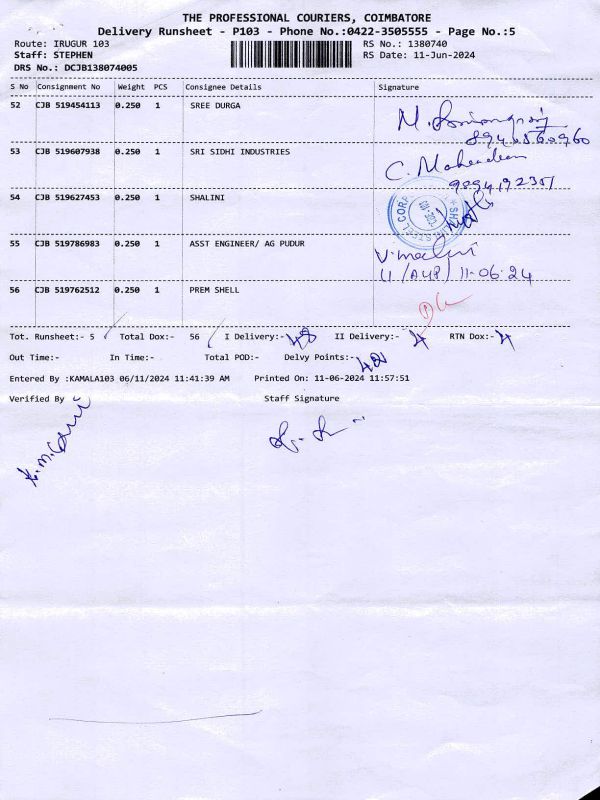 THE PROFESSIONAL COURIERS, COIMBATORE
Delivery Runsheet - P103 - Phone No.:0422-3505555 - Page No.:5
Route: IRUGUR 103 RS No.: 1380740
Staff: STEPHEN RS Date: 11-Jun-2024
DRS No.: DCJB138074005
S No Consignment No Weight PCS Consignee Details Signature
52 CJB 519454113 0.250 1 SREE DURGA
53 CJB 519607938 0.250 1 SRI SIDHI INDUSTRIES C. Mahendran
54 CJB 519627453 0.250 1 SHALINI
55 CJB 519786983 0.250 1 ASST ENGINEER/ AG PUDUR V. malini
11-06-24
56 CJB 519762512 0.250 1 PREM SHELL
Tot. Runsheet:- 5 Total Dox:- 56 I Delivery:- 48 II Delivery:- 4 RTN Dox:- 4
Out Time:- In Time:- Total POD:- Delvy Points:-
Entered By :KAMALA103 06/11/2024 11:41:39 AM Printed On: 11-06-2024 11:57:51
Verified By Staff Signature